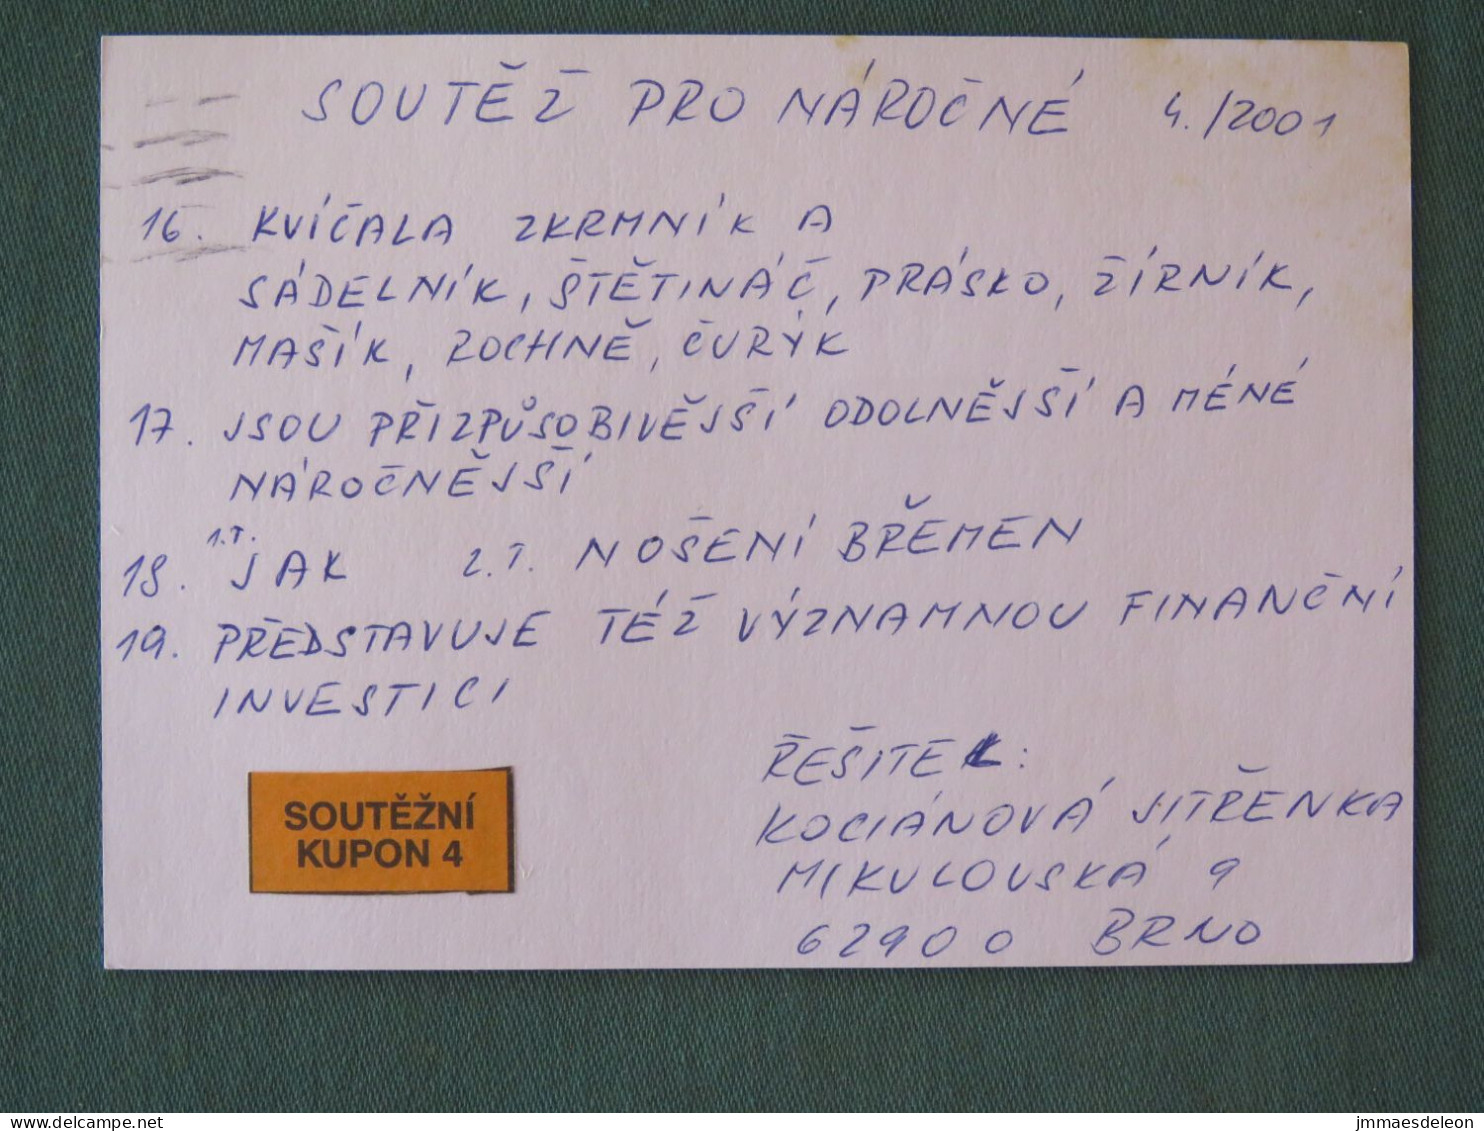 SOUTĚŽ PRO NÁROČNÉ 4./2001
16. KVÍČALA ZKRMNÍK A
SÁDELNÍK, ŠTĚTINÁČ, PRÁSKO, ŽÍRNÍK,
MAŠÍK, ROCHNĚ, ČURÝK
17. JSOU PŘIZPŮSOBIVĚJŠÍ ODOLNĚJŠÍ A MÉNÉ
NÁROČNĚJŠÍ
18. 1.T. JAK 2.T. NOŠENÍ BŘEMEN
19. PŘEDSTAVUJE TÉŽ VÝZNAMNOU FINANČNÍ
INVESTICI
SOUTĚŽNÍ
KUPON 4
ŘEŠITEL:
KOCIÁNOVÁ JITŘENKA
MIKULOVSKÁ 9
62900 BRNO
delcampe.net
jmmaesdeleon